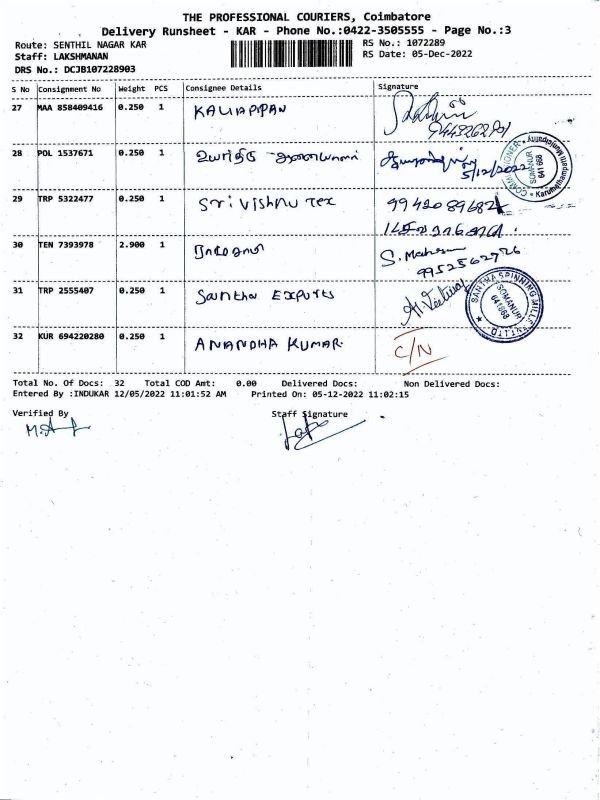 THE PROFESSIONAL COURIERS, Coimbatore
Delivery Runsheet - KAR - Phone No.:0422-3505555 - Page No.:3
Route: SENTHIL NAGAR KAR
RS No.: 1072289
Staff: LAKSHMANAN
RS Date: 05-Dec-2022
DRS No.: DCJB107228903
S No Consignment No Weight PCS Consignee Details Signature
27 MAA 858409416 0.250 1 KALIAPPAN
28 POL 1537671 0.250 1
5/12/2022
COMMISSIONER SOMANUR 641 668 Karumathampatti Municipality
29 TRP 5322477 0.250 1 Sri Vishnu Tex 9942089682
30 TEN 7393978 2.900 1 S. Mahes
9952562726
31 TRP 2555407 0.250 1 Santha Exports
SANTHA SPINNING MILLS PVT. LTD SOMANUR 641 668
32 KUR 694220280 0.250 1 ANANDHA KUMAR. C/N
Total No. Of Docs: 32 Total COD Amt: 0.00 Delivered Docs: Non Delivered Docs:
Entered By :INDUKAR 12/05/2022 11:01:52 AM Printed On: 05-12-2022 11:02:15
Verified By Staff Signature